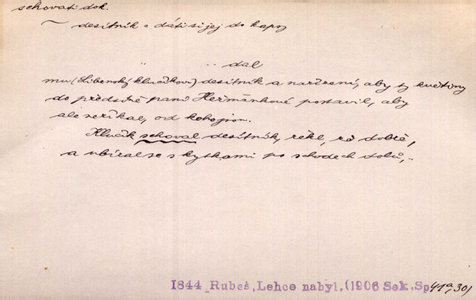 schovati dok.
~ desítník = dáti si jej do kapsy
.. .. dal
mu (Libenský klučíkovi) desítník a nařízení, aby ty květiny
do předsíně paní Heřmánkové postavil, aby
ale neříkal, od koho jsou.
Klučík schoval desítník, řekl, že dobře,
a ubíral se s kytkami po schodech dolů,..
1844 Rubeš, Lehce nabyl.(1906 Sek.Sp. 419,30)